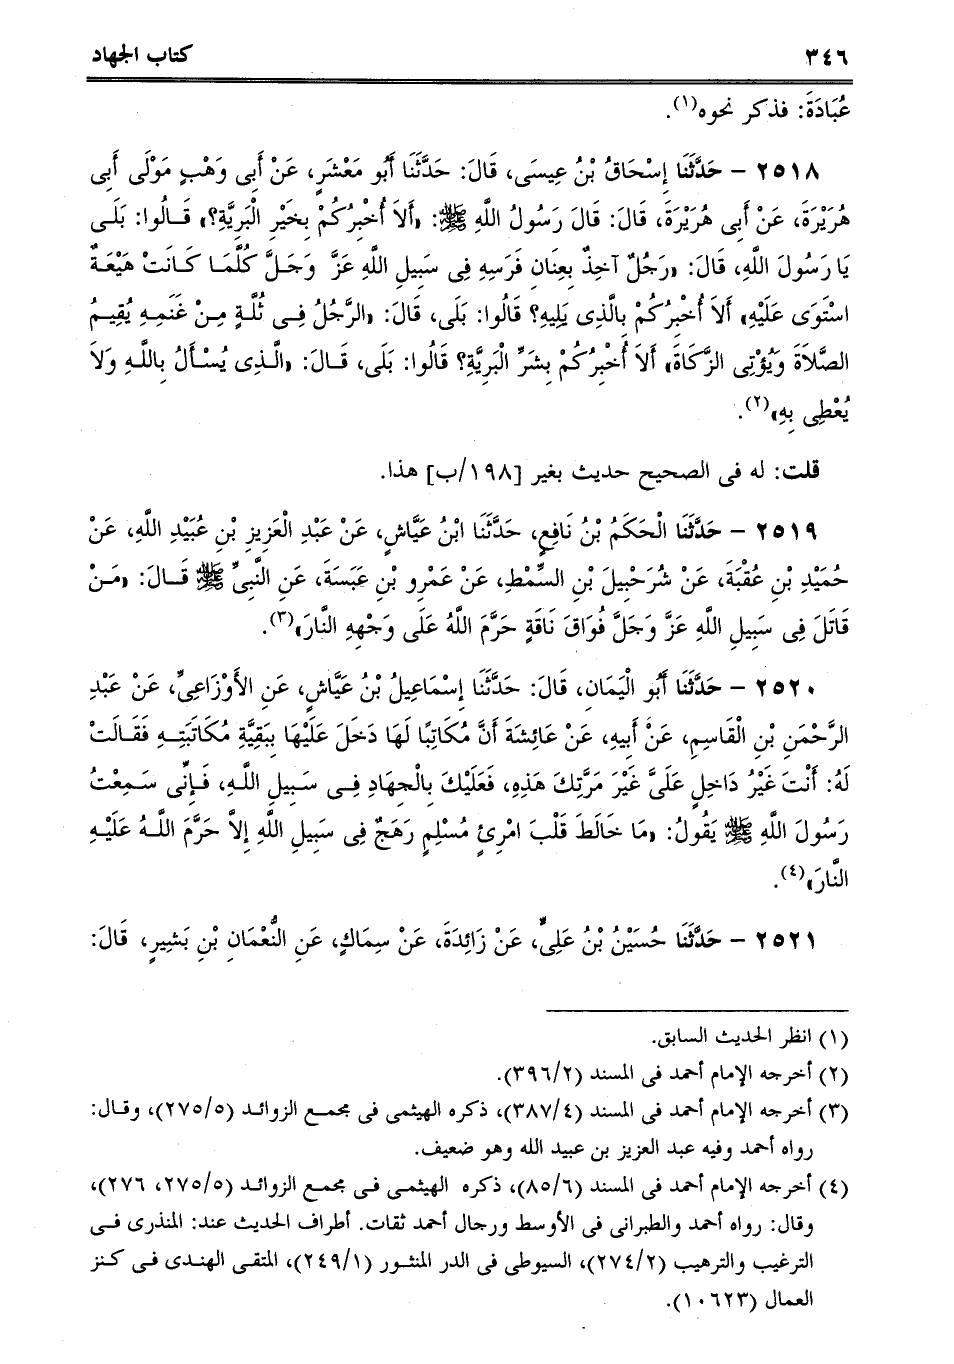 ٣٤٦ كتاب الجهاد
عُبَادَةَ: فذكر نحوه(١).
٢٥١٨ – حَدَّثَنَا إِسْحَاقُ بْنُ عِيسَى، قَالَ: حَدَّثَنَا أَبُو مَعْشَرٍ، عَنْ أَبِى وَهْبٍ مَوْلَى أَبِى
هُرَيْرَةَ، عَنْ أَبِى هُرَيْرَةَ، قَالَ: قَالَ رَسُولُ اللَّهِ ﷺ: «أَلاَ أُخْبِرُكُمْ بِخَيْرِ الْبَرِيَّةِ؟» قَالُوا: بَلَى
يَا رَسُولَ اللَّهِ، قَالَ: «رَجُلٌ آخِذٌ بِعِنَانِ فَرَسِهِ فِى سَبِيلِ اللَّهِ عَزَّ وَجَلَّ كُلَّمَا كَانَتْ هَيْعَةٌ
اسْتَوَى عَلَيْهِ» أَلاَ أُخْبِرُكُمْ بِالَّذِى يَلِيهِ؟ قَالُوا: بَلَى، قَالَ: «الرَّجُلُ فِى ثُلَّةٍ مِنْ غَنَمِهِ يُقِيمُ
الصَّلاَةَ وَيُؤْتِى الزَّكَاةَ» أَلاَ أُخْبِرُكُمْ بِشَرِّ الْبَرِيَّةِ؟ قَالُوا: بَلَى، قَالَ: «الَّذِى يُسْأَلُ بِاللَّهِ وَلاَ
يُعْطِى بِهِ»(٢).
قلت: له فى الصحيح حديث بغير [١٩٨/ب] هذا.
٢٥١٩ – حَدَّثَنَا الْحَكَمُ بْنُ نَافِعٍ، حَدَّثَنَا ابْنُ عَيَّاشٍ، عَنْ عَبْدِ الْعَزِيزِ بْنِ عُبَيْدِ اللَّهِ، عَنْ
حُمَيْدِ بْنِ عُقْبَةَ، عَنْ شُرَحْبِيلَ بْنِ السِّمْطِ، عَنْ عَمْرِو بْنِ عَبَسَةَ، عَنِ النَّبِىِّ ﷺ قَالَ: «مَنْ
قَاتَلَ فِى سَبِيلِ اللَّهِ عَزَّ وَجَلَّ فُوَاقَ نَاقَةٍ حَرَّمَ اللَّهُ عَلَى وَجْهِهِ النَّارَ»(٣).
٢٥٢٠ – حَدَّثَنَا أَبُو الْيَمَانِ، قَالَ: حَدَّثَنَا إِسْمَاعِيلُ بْنُ عَيَّاشٍ، عَنِ الأَوْزَاعِىِّ، عَنْ عَبْدِ
الرَّحْمَنِ بْنِ الْقَاسِمِ، عَنْ أَبِيهِ، عَنْ عَائِشَةَ أَنَّ مُكَاتِبًا لَهَا دَخَلَ عَلَيْهَا بِبَقِيَّةِ مُكَاتَبَتِهِ فَقَالَتْ
لَهُ: أَنْتَ غَيْرُ دَاخِلٍ عَلَىَّ غَيْرَ مَرَّتِكَ هَذِهِ، فَعَلَيْكَ بِالْجِهَادِ فِى سَبِيلِ اللَّهِ، فَإِنِّى سَمِعْتُ
رَسُولَ اللَّهِ ﷺ يَقُولُ: «مَا خَالَطَ قَلْبَ امْرِئٍ مُسْلِمٍ رَهَجٌ فِى سَبِيلِ اللَّهِ إِلاَّ حَرَّمَ اللَّهُ عَلَيْهِ
النَّارَ»(٤).
٢٥٢١ – حَدَّثَنَا حُسَيْنُ بْنُ عَلِىٍّ، عَنْ زَائِدَةَ، عَنْ سِمَاكٍ، عَنِ النُّعْمَانِ بْنِ بَشِيرٍ، قَالَ:
(١) انظر الحديث السابق.
(٢) أخرجه الإمام أحمد فى المسند (٣٩٦/٢).
(٣) أخرجه الإمام أحمد فى المسند (٣٨٧/٤)، ذكره الهيثمى فى مجمع الزوائد (٢٧٥/٥)، وقال:
رواه أحمد وفيه عبد العزيز بن عبيد الله وهو ضعيف.
(٤) أخرجه الإمام أحمد فى المسند (٨٥/٦)، ذكره الهيثمى فى مجمع الزوائد (٢٧٥/٥، ٢٧٦)،
وقال: رواه أحمد والطبرانى فى الأوسط ورجال أحمد ثقات. أطراف الحديث عند: المنذرى فى
الترغيب والترهيب (٢٧٤/٢)، السيوطى فى الدر المنثور (٢٤٩/١)، المتقى الهندى فى كنز
العمال (١٠٦٢٣).